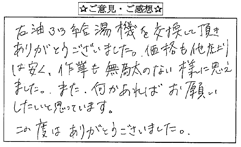 ☆ご意見・ご感想☆
石油給湯機を交換して頂き
ありがとうございました。価格も他店より
は安く、作業も無駄のない様に思え
ました。また、何かあればお願い
したいと思っています。
この度はありがとうございました。